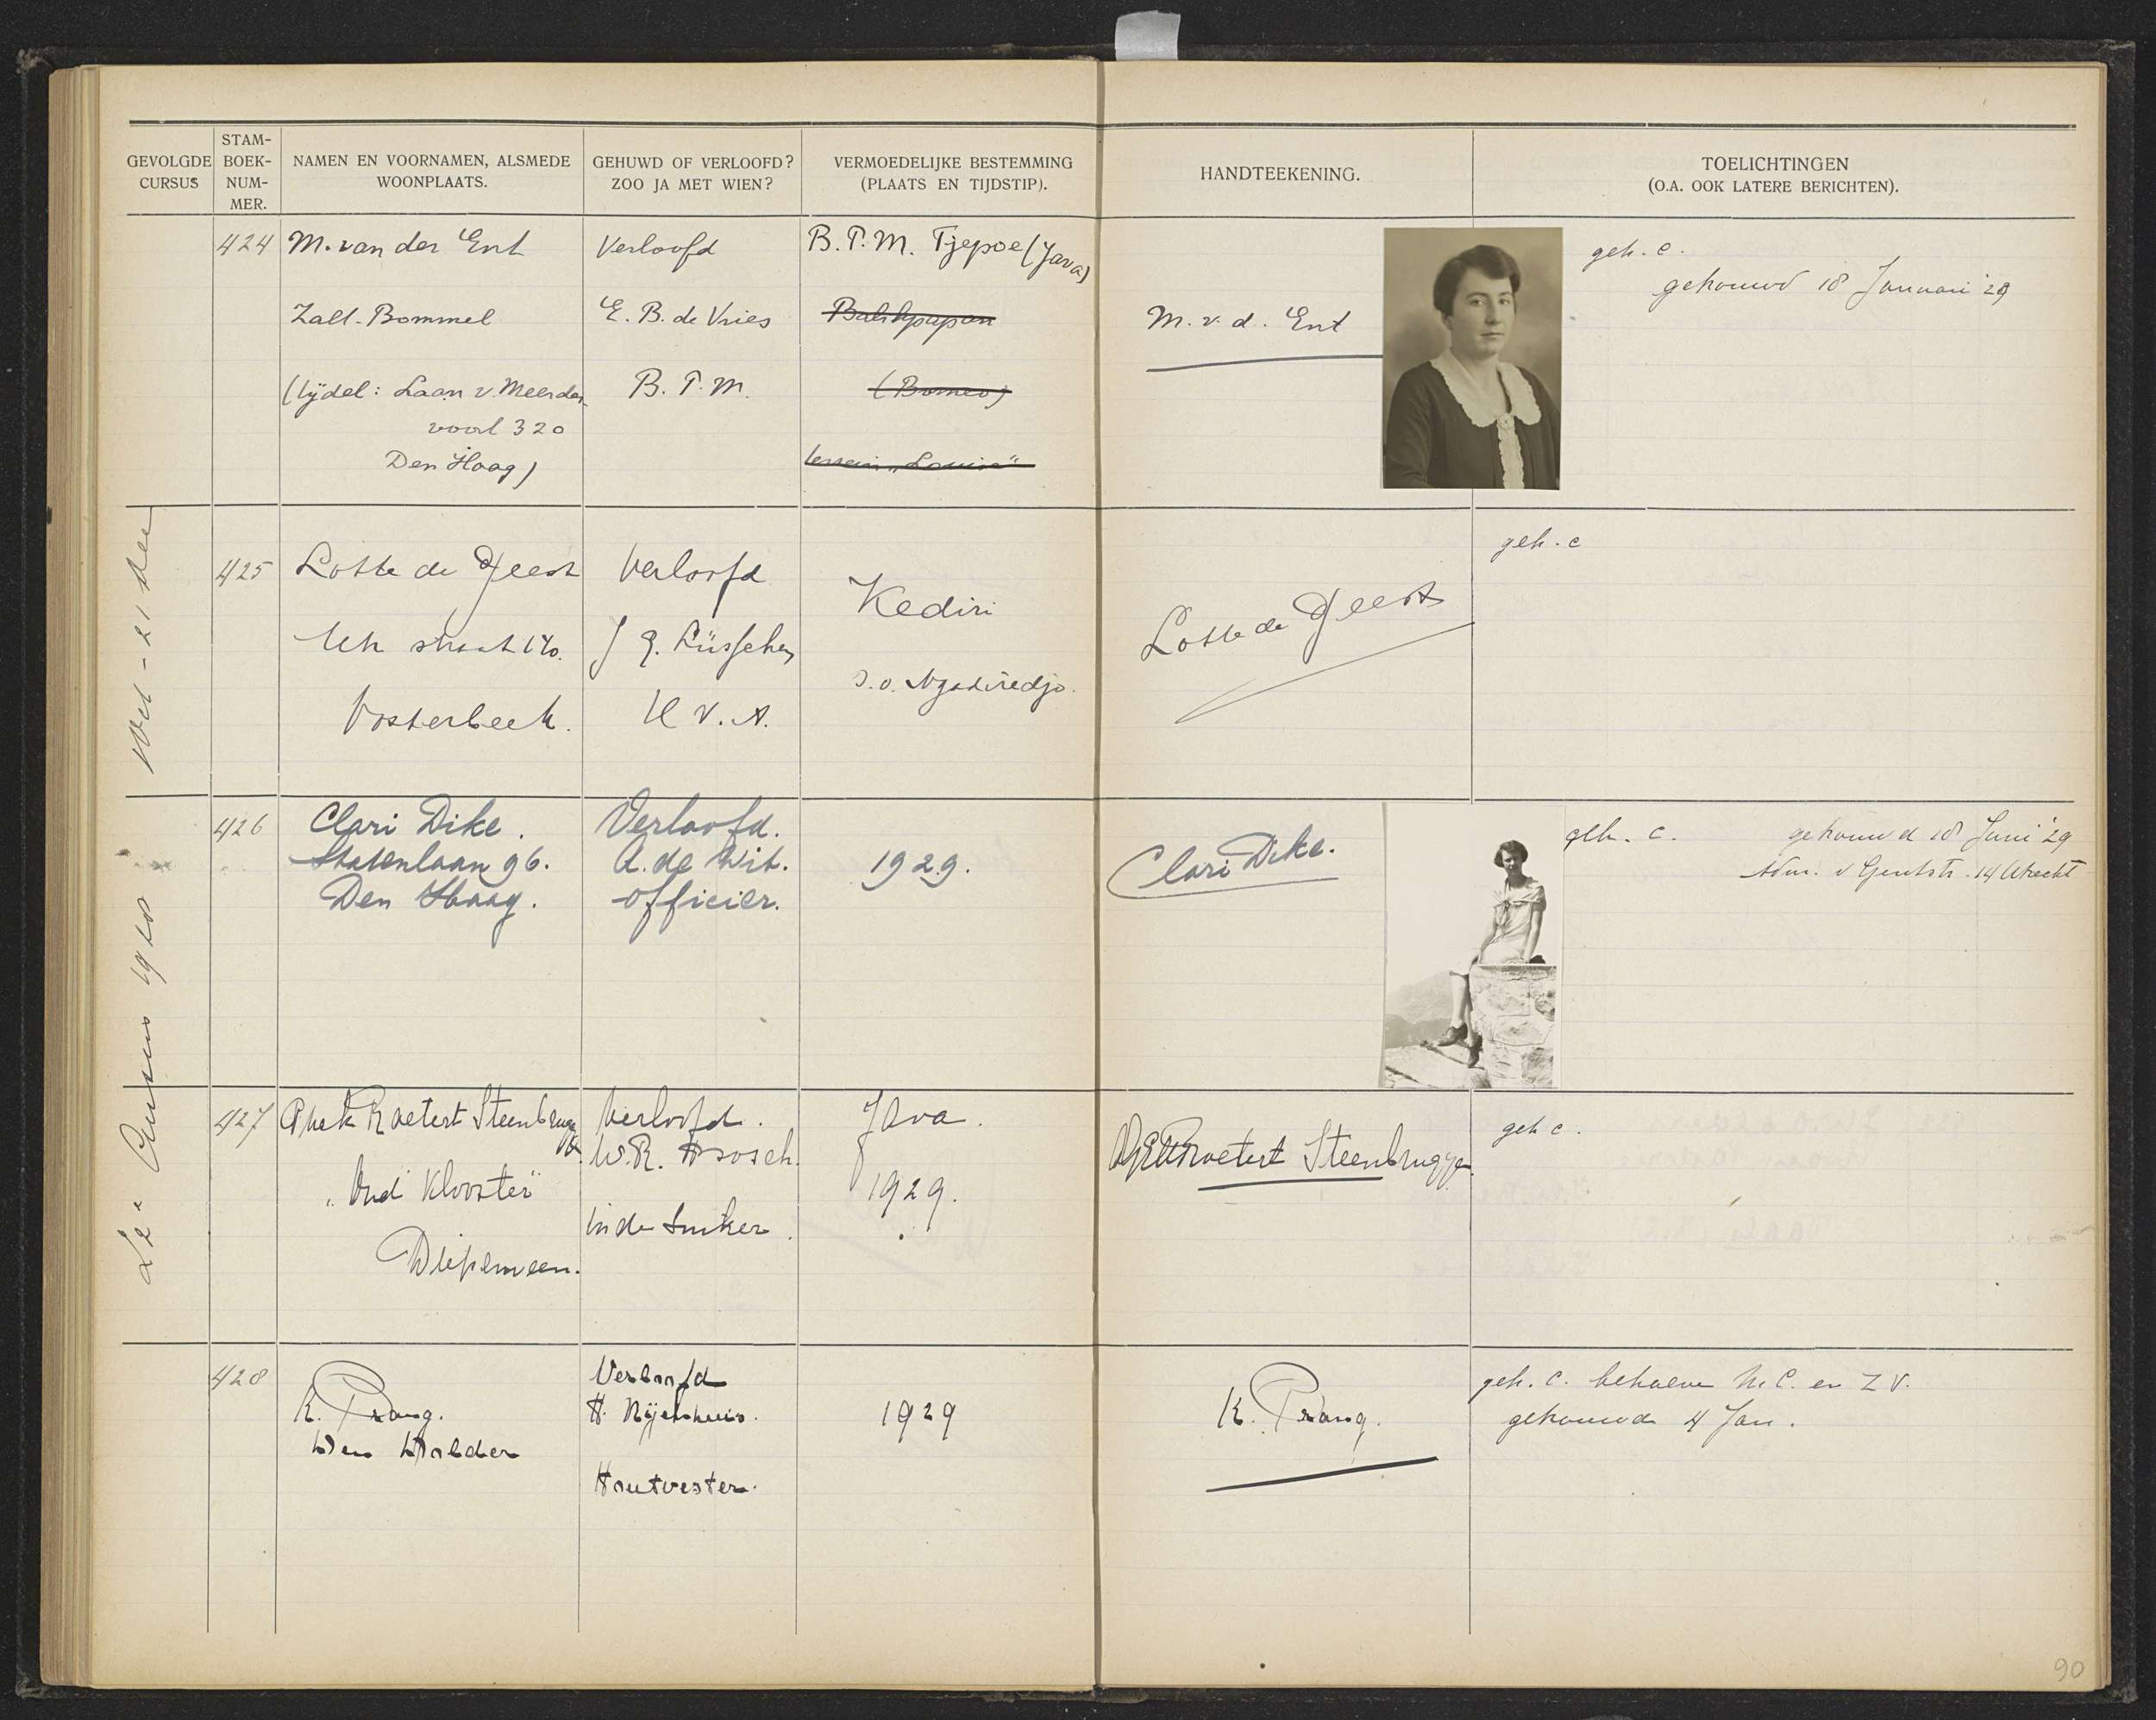 GEVOLGDE CURSUS
STAM-BOEK-NUM-MER.
NAMEN EN VOORNAMEN, ALSMEDE WOONPLAATS.
GEHUWD OF VERLOOFD? ZOO JA MET WIEN?
VERMOEDELIJKE BESTEMMING (PLAATS EN TIJDSTIP).
HANDTEEKENING.
TOELICHTINGEN (O.A. OOK LATERE BERICHTEN).
424
M. van der Ent
Zalt-Bommel
(tijdel: Laan v. Meerder-
voort 320
Den Haag)
Verloofd
E. B. de Vries
B. P. M.
B. P. M. Tjepoe (Java)
Balikpapan
(Borneo)
"Louise"
M. v. d. Ent
geh. c.
gehouwd 18 Januari '29
425
Lotte de Geest
Utr straat 170.
Oosterbeek.
Verloofd
H V. A.
Kediri
s.o. Ngadiredjo.
Lotte de Geest
geh. c
426
Clari Dike.
Statenlaan 96.
Den Haag.
Verloofd.
A. de Wit.
officier.
1929.
Clari Dike.
geh. c.
gehouwd 18 Juni '29
Adm. v Gentstr. 14 Utrecht
427
Roetert Steenbrugge
"Oud Klooster"
Diepenveen.
Verloofd.
W. R.
in de suiker.
Java.
1929.
Roetert Steenbrugge
geh c.
428
K. Prang.
Den Dolder
Verloofd
H. Nijenhuis.
Houtvester.
1929
K. Prang.
geh. C. behalve M. C. en Z V.
gehouwd 4 Jan.
Cursus 1928
90